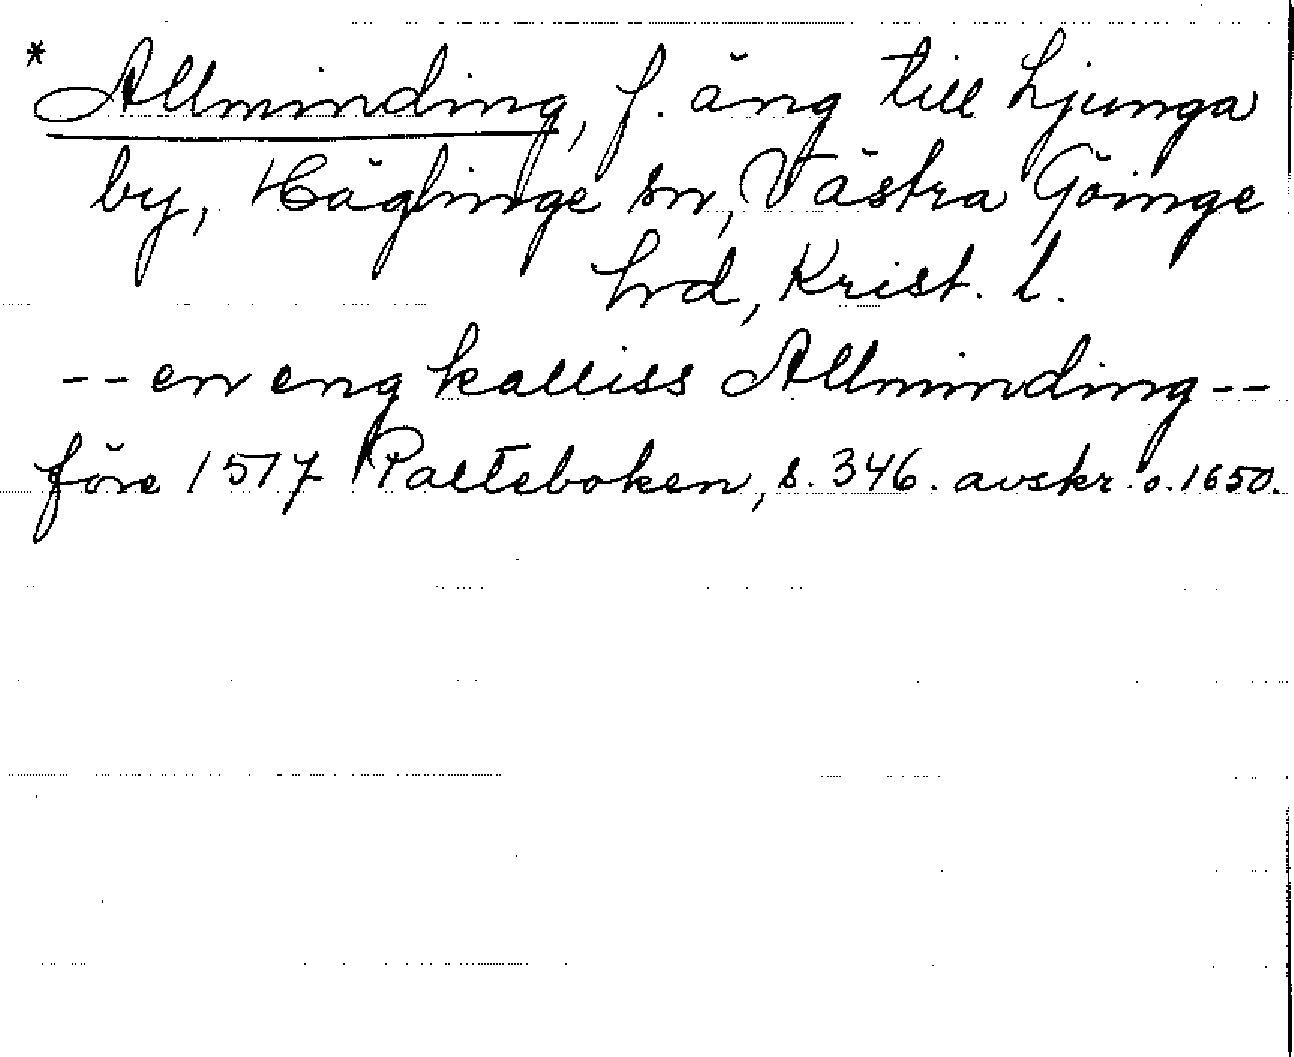 * Allminding, f. äng till Ljunga
by, Häglinge sn, Västra Göinge
hrd, Krist. l.
-- en eng kalliss Allminding --
före 1517 Palteboken, s. 346. avskr. o. 1650.